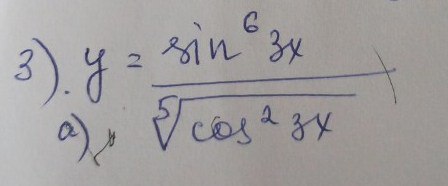 3). y = sin⁶ 3x / ⁵√(cos² 3x)
a)